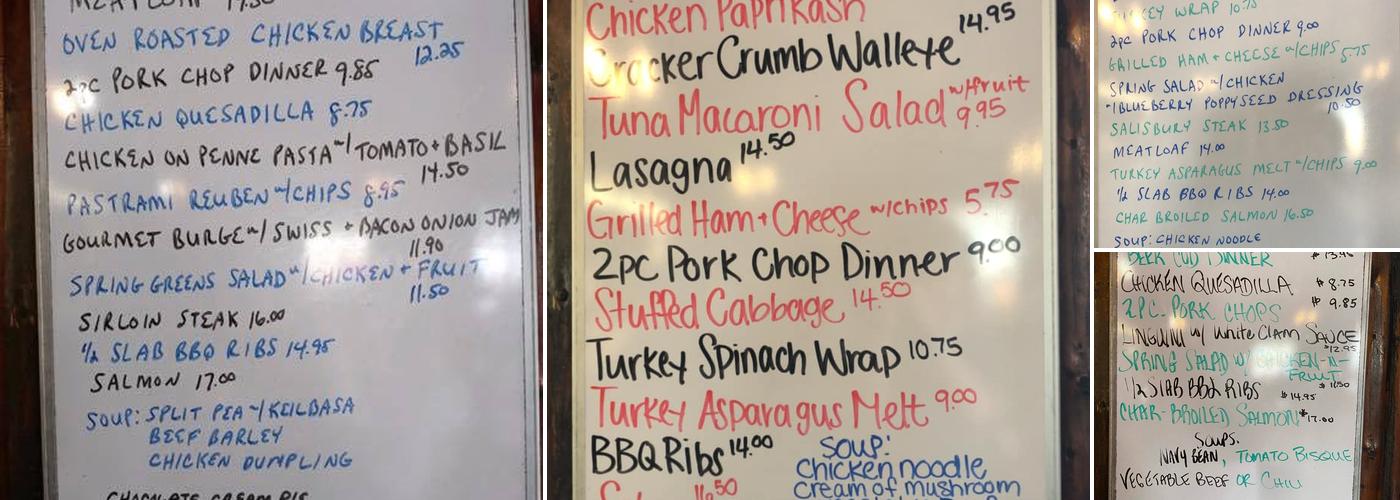 MEATLOAF
OVEN ROASTED CHICKEN BREAST
12.25
2pc PORK CHOP DINNER 9.85
CHICKEN QUESADILLA 8.75
CHICKEN ON PENNE PASTA w/ TOMATO + BASIL
14.50
PASTRAMI REUBEN w/CHIPS 8.95
GOURMET BURGE w/ SWISS + BACON ONION JAM
11.90
SPRING GREENS SALAD w/CHICKEN + FRUIT
11.50
SIRLOIN STEAK 16.00
1/2 SLAB BBQ RIBS 14.95
SALMON 17.00
SOUP: SPLIT PEA w/KEILBASA
BEEF BARLEY
CHICKEN DUMPLING
CHOCOLATE CREAM PIE
Chicken Paprikash
Cracker Crumb Walleye 14.95
Tuna Macaroni Salad w/fruit
9.95
Lasagna 14.50
Grilled Ham + Cheese w/chips 5.75
2pc Pork Chop Dinner 9.00
Stuffed Cabbage 14.50
Turkey Spinach Wrap 10.75
Turkey Asparagus Melt 9.00
BBQ Ribs 14.00
16.50
Soup:
chicken noodle
cream of mushroom
TURKEY WRAP 10.75
2pc PORK CHOP DINNER 9.00
GRILLED HAM + CHEESE w/CHIPS 5.75
SPRING SALAD w/CHICKEN
+ BLUEBERRY POPPYSEED DRESSING
10.50
SALISBURY STEAK 13.50
MEATLOAF 14.00
TURKEY ASPARAGUS MELT w/CHIPS 9.00
1/2 SLAB BBQ RIBS 14.00
CHAR BROILED SALMON 16.50
SOUP: CHICKEN NOODLE
BEER COD DINNER
CHICKEN QUESADILLA $8.75
2PC. PORK CHOPS $9.85
LINGWINI w/ White Clam SAUCE
$12.95
SPRING SALAD W/ CHICKEN-N-
FRUIT
$11.50
1/2 SLAB BBQ RIBS $14.95
CHAR-BROILED SALMON $17.00
SOUPS.
NAVY BEAN, TOMATO BISQUE
VEGETABLE BEEF OR CHILI